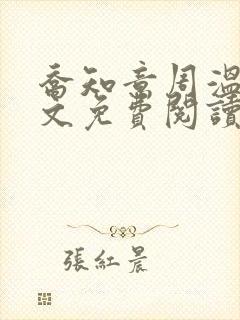 喬知意周溫
文免費閱讀
張紅晨